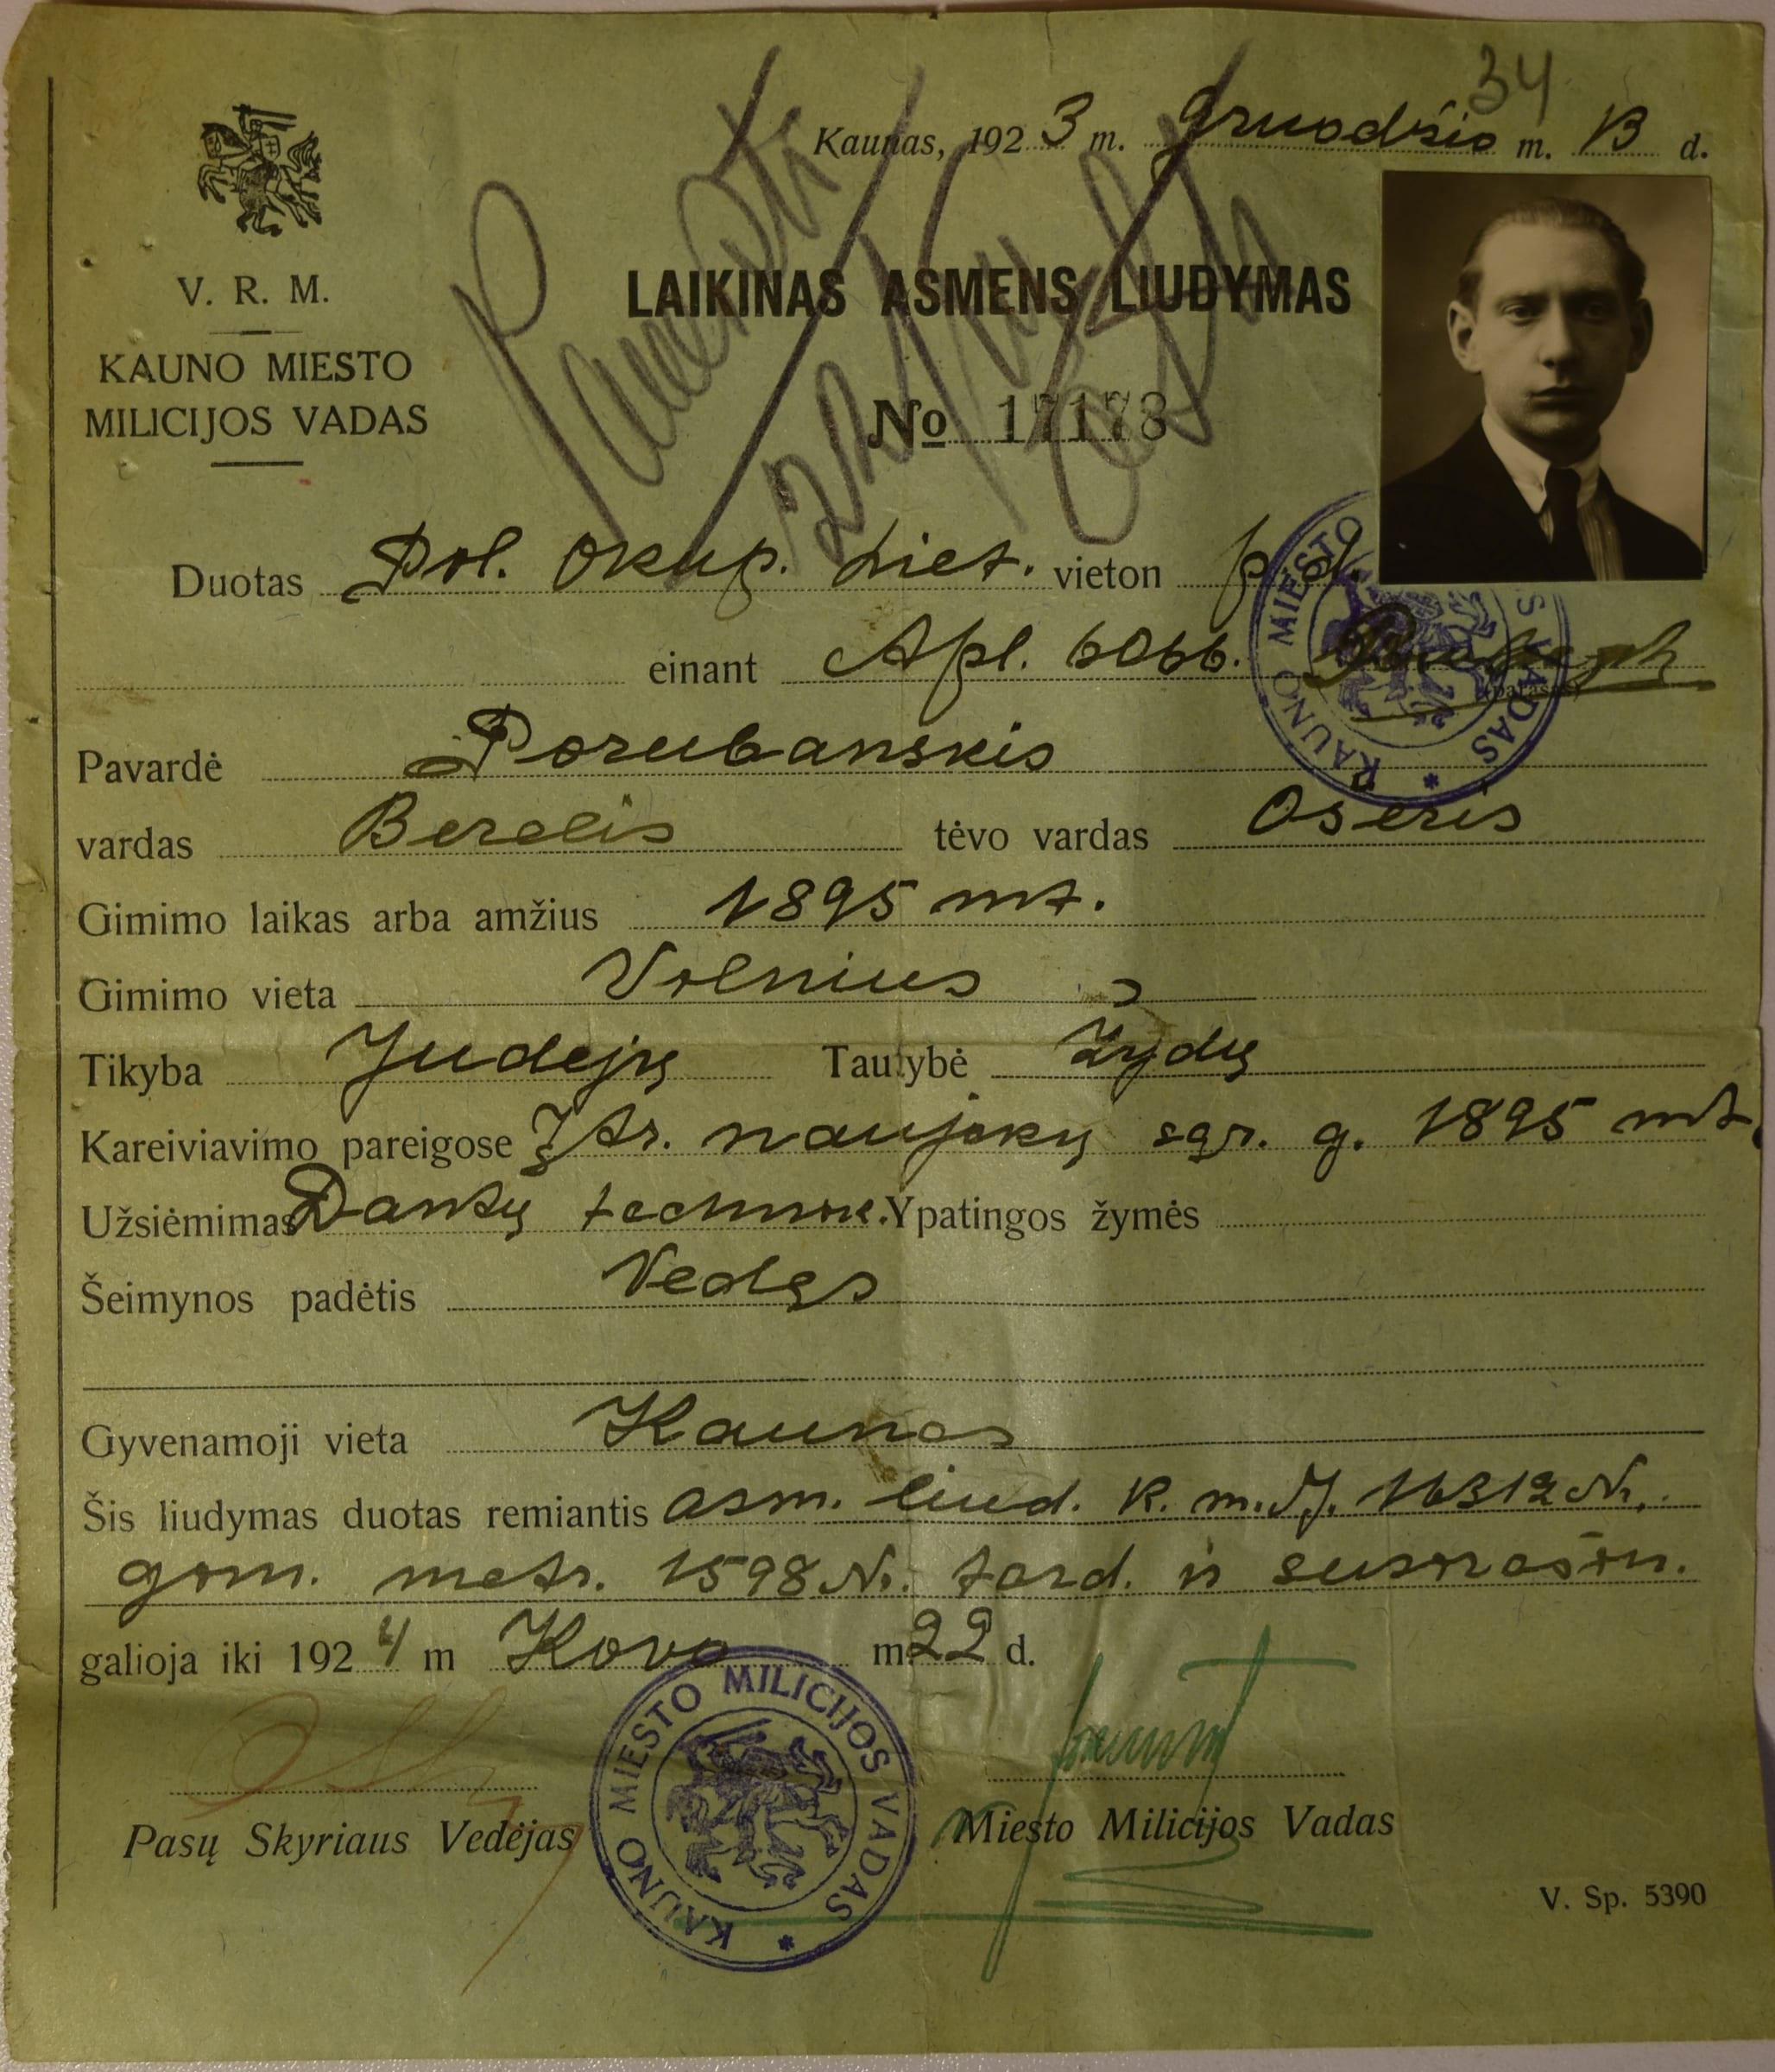 34
Kaunas, 1923 m. gruodžio m. 13 d.
V. R. M.
KAUNO MIESTO
MILICIJOS VADAS
LAIKINAS ASMENS LIUDYMAS
No 17173
Duotas Pol. Okup. Liet. vieton
einant Apl. 6066.
(parašas)
Pavardė Porubanskis
vardas Berelis tėvo vardas Oseris
Gimimo laikas arba amžius 1895 mt.
Gimimo vieta Vilnius
Tikyba Judėjų Tautybė Žydų
Kareiviavimo pareigose Įtr. naujokų sąr. g. 1895 mt.
Užsiėmimas Dantų technik. Ypatingos žymės
Šeimynos padėtis Vedęs
Gyvenamoji vieta Kaunas
Šis liudymas duotas remiantis asm. liud. K. m. 16312 Nr.
gim. metr. 1598 Nr. tard. ir susirašin.
galioja iki 1924 m Kovo m 22 d.
Pasų Skyriaus Vedėjas
Miesto Milicijos Vadas
KAUNO MIESTO MILICIJOS VADAS *
KAUNO MIESTO VADAS *
V. Sp. 5390